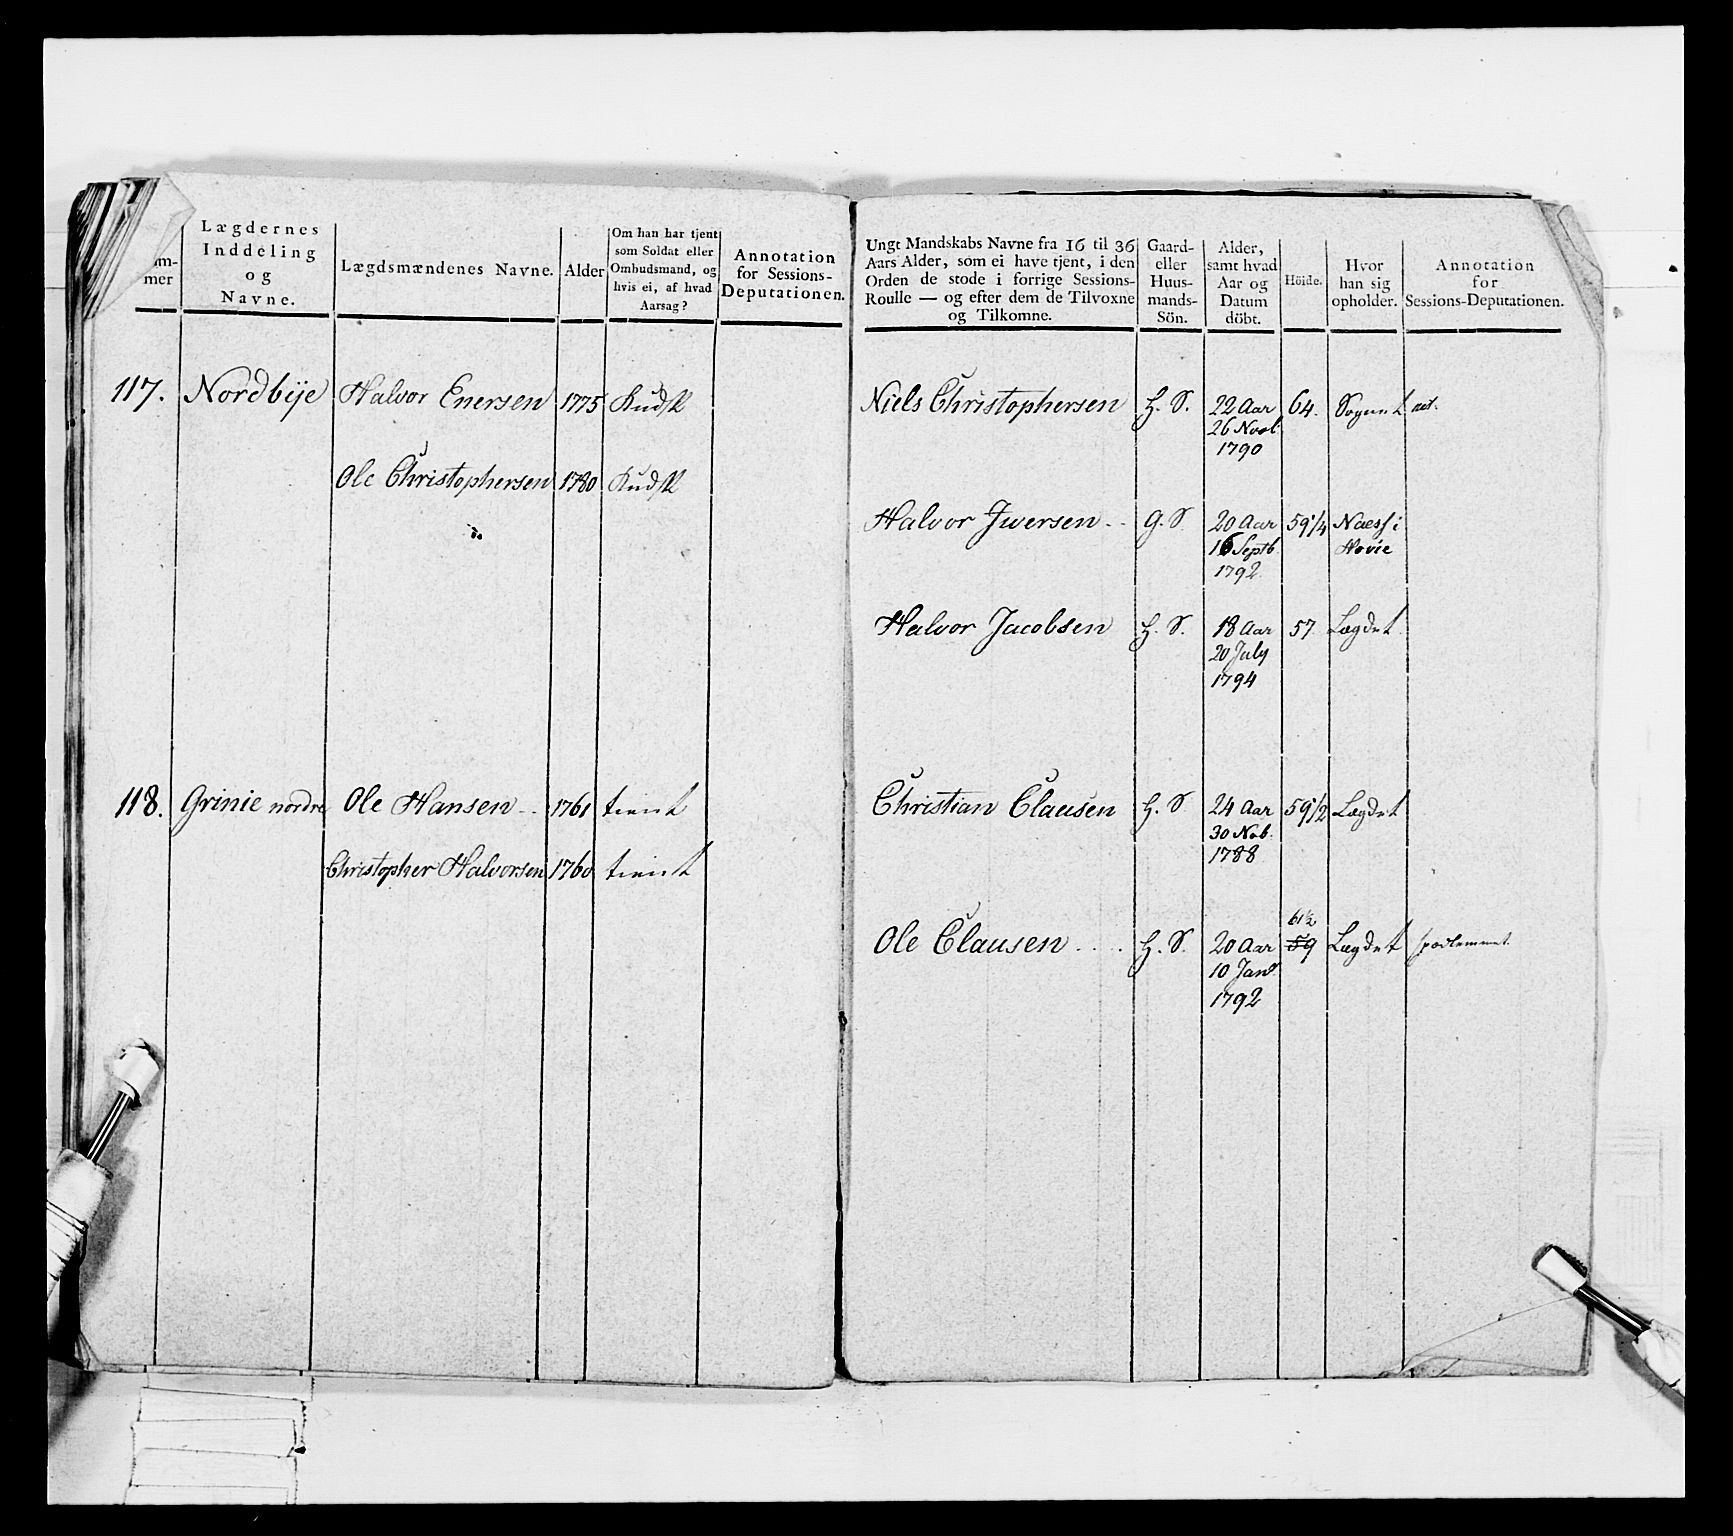 mer
Lægdernes
Inddeling
og
Navne.
Lægdsmændenes Navne.
Alder
Om han har tjent
som Soldat eller
Ombudsmand, og
hvis ei, af hvad
Aarsag?
Annotation
for Sessions-
Deputationen.
117. Nordbye Halvor Enersen 1775
Ole Christophersen 1780
118. Grinie nordre Ole Hansen 1761 tient
Christopher Halvorsen 1760 tient
Ungt Mandskabs Navne fra 16 til 36
Aars Alder, som ei have tjent, i den
Orden de stode i forrige Sessions-
Roulle — og efter dem de Tilvoxne
og Tilkomne.
Gaard-
eller
Huus-
mands-
Sön.
Alder,
samt hvad
Aar og
Datum
döbt.
Höide.
Hvor
han sig
opholder.
Annotation
for
Sessions-Deputationen.
Niels Christophersen H. S. 22 Aar 64. Sognet
26 Novb:
1790
Halvor Iversen G. S. 20 Aar 59 1/4 Næss i
16 Septb. Hovie
1792.
Halvor Jacobsen H. S. 18 Aar 57 Lægdet
20 July
1794
Christian Clausen H. S 24 Aar 59 1/2 Lægdet
30 Nob.
1788
61 1/2
Ole Clausen H. S. 20 Aar 59 Lægdet
10 Jan
1792